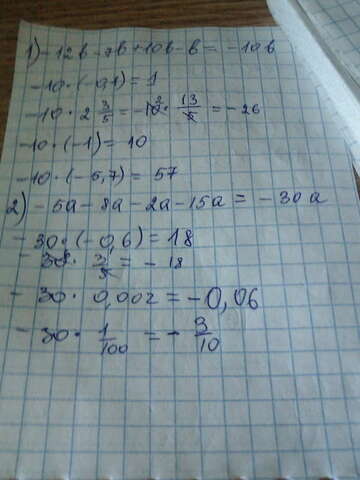 1) -12b - 7b + 10b - b = -10b
-10 · (-0,1) = 1
-10 · 2 3/5 = -10 · 13/5 = -26
-10 · (-1) = 10
-10 · (-5,7) = 57
2) -5a - 8a - 2a - 15a = -30a
-30 · (-0,6) = 18
-30 · 3/5 = -18
-30 · 0,002 = -0,06
-30 · 1/100 = -3/10